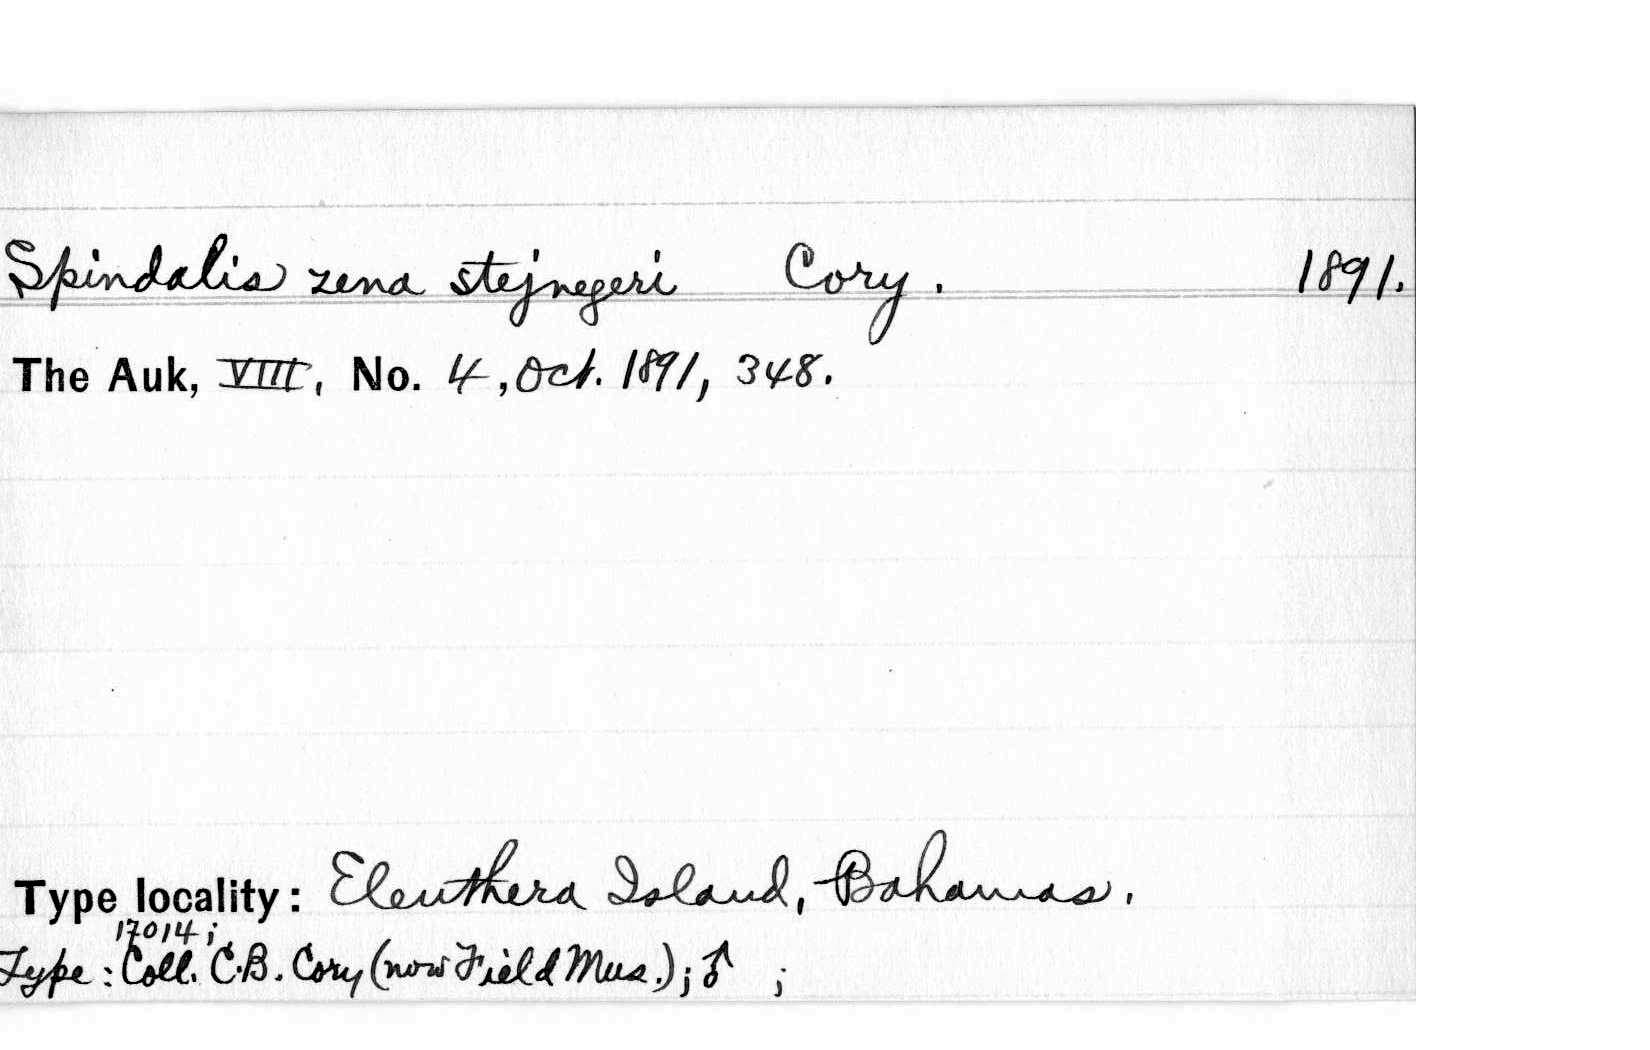 Spindalis zena stejnegeri Cory. 1891.
The Auk, VIII, No. 4, Oct. 1891, 348.
Type locality: Eleuthera Island, Bahamas.
17014;
Type: Coll. C.B. Cory (now Field Mus.); ♂ ;